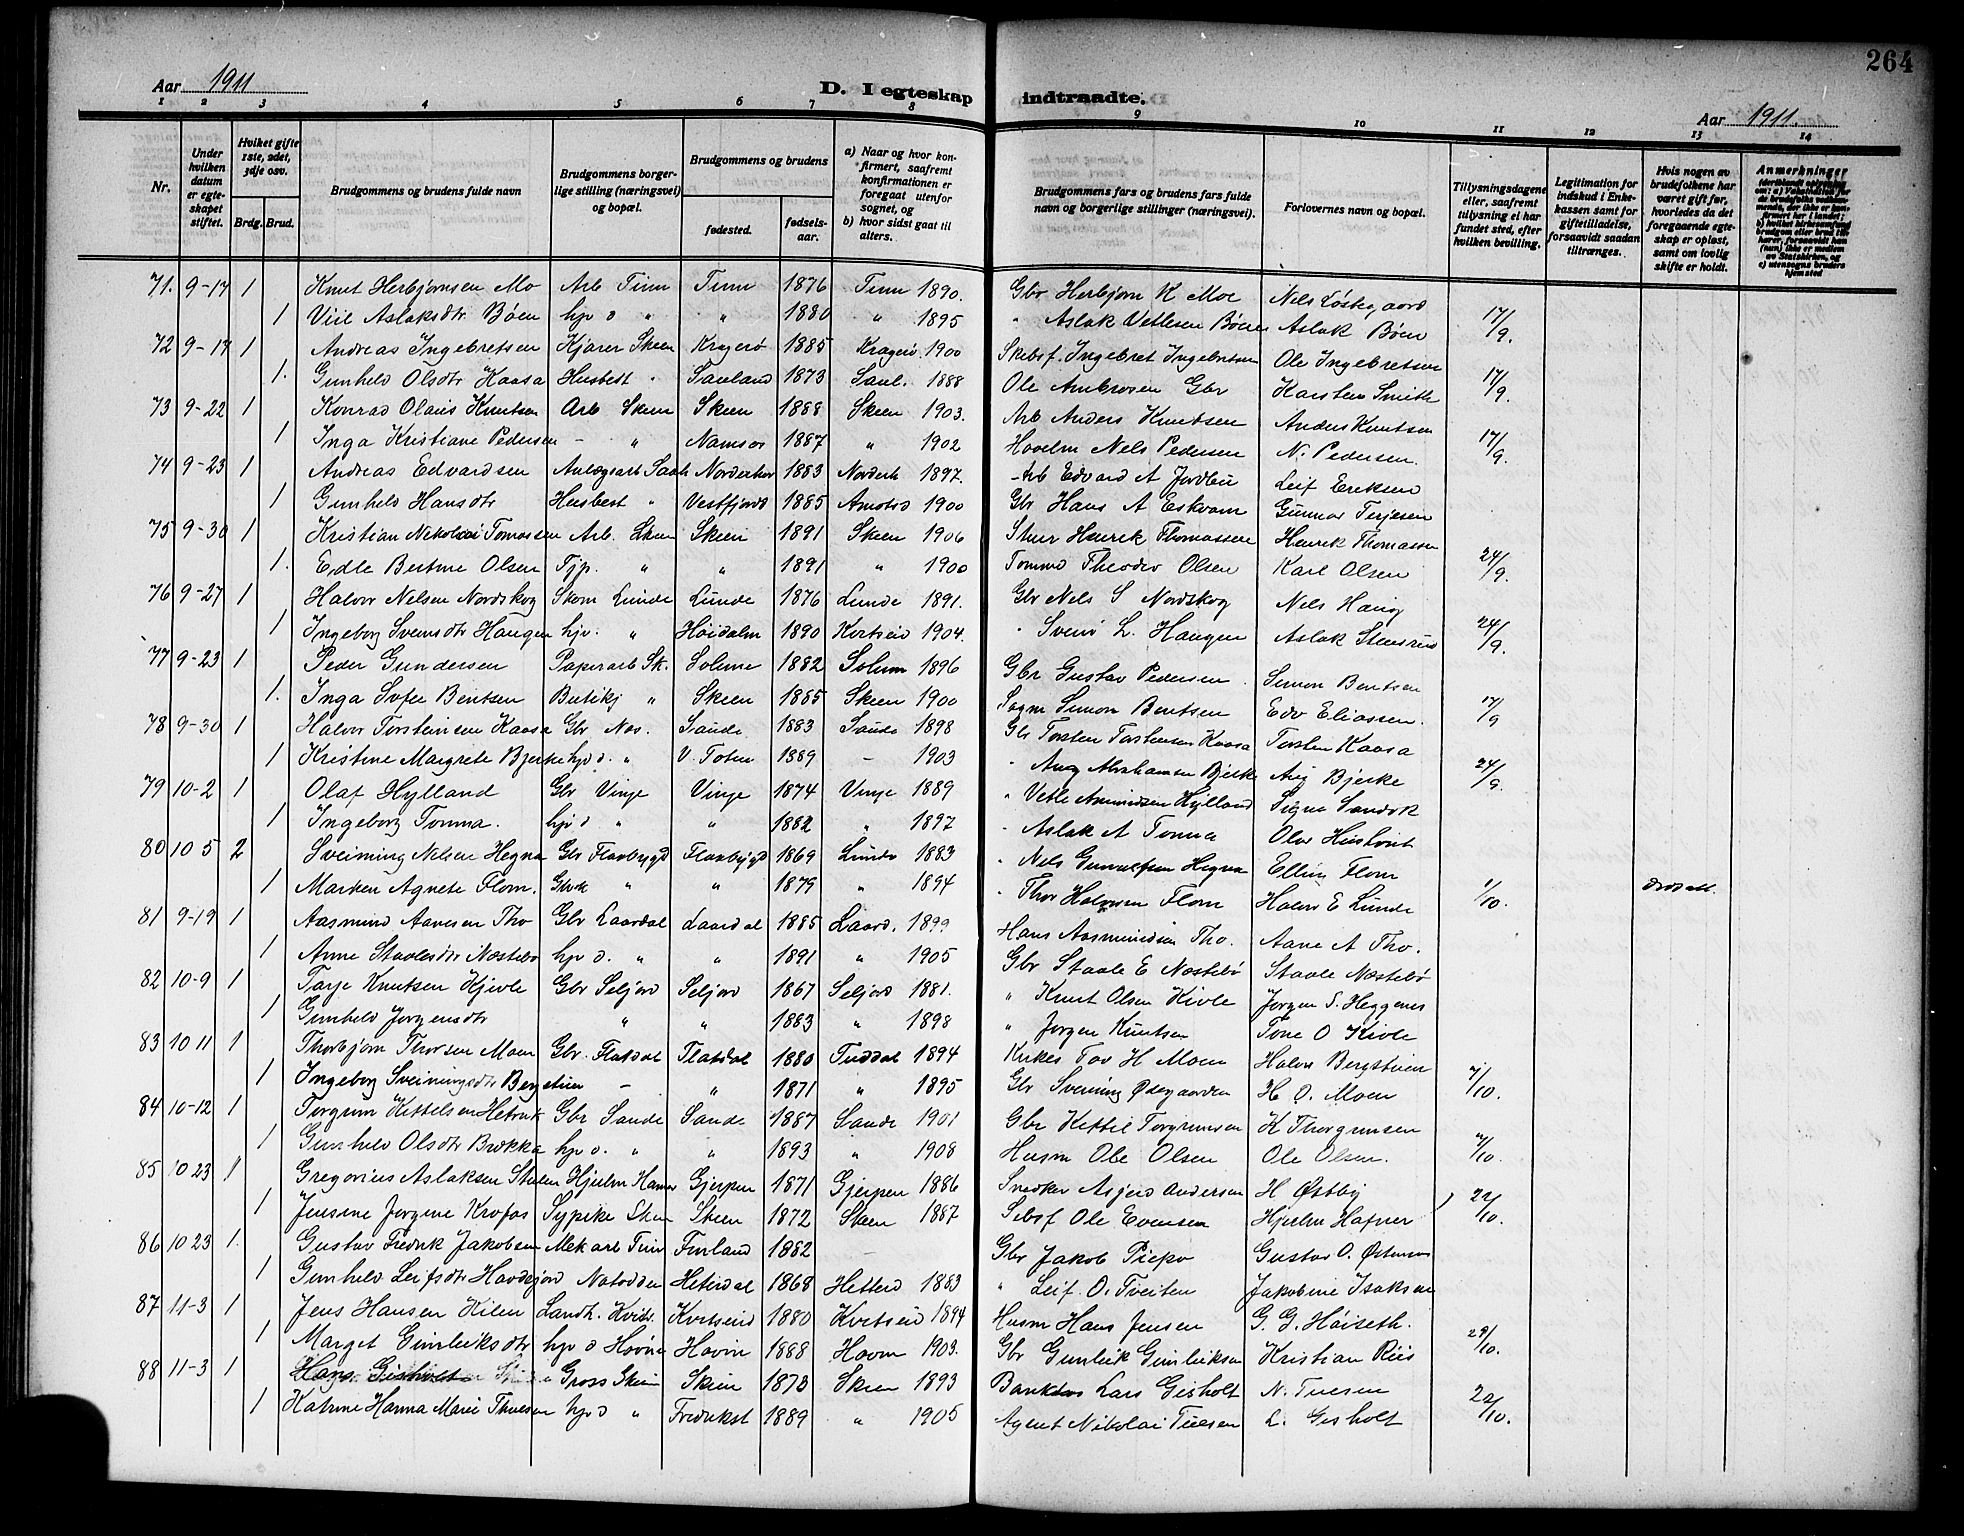 264
Aar 1911
D. I egteskap indtraadte.
Aar 1911.
1 2 3 4 5 6 7 8 9 10 11 12 13 14
Nr.
Under hvilken datum er egteskapet stiftet.
Hvilket gifte 1ste, 2det, 3dje osv.
Brdg. Brud.
Brudgommens og brudens fulde navn
Brudgommens borgerlige stilling (næringsvei) og bopæl.
Brudgommens og brudens
fødested.
fødselsaar.
a) Naar og hvor konfirmert, saafremt konfirmationen er foregaat utenfor sognet, og
b) hvor sidst gaat til alters.
Brudgommens fars og brudens fars fulde navn og borgerlige stillinger (næringsvei).
Forlovernes navn og bopæl.
Tillysningsdagene eller, saafremt tillysning ei har fundet sted, efter hvilken bevilling.
Legitimation for indskud i Enkekassen samt for giftetilladelse, forsaavidt saadan tiltrænges.
Hvis nogen av brudefolkene har været gift før, hvorledes da det foregaaende egteskap er opløst, samt om lovlig skifte er holdt.
Anmerkninger
71. 9-17 1 Knut Herbjørnsen Mo Arb Tinn Tinn 1876 Tinn 1890. Gbr Herbjørn K Moe Nels Løstegaard
1 Viil Aslaksdtr Bøen hjv d " " 1880 " 1895 " Aslak Vetlesen Bøen Aslak Bøen 17/9.
72 9-17 1 Andreas Ingebretsen Kjører Skeen Kragerø 1885 Kragerø 1900 Skibsf. Ingebret Ingebretsen Ole Ingebretsen
1. Gunhild Olsdtr Kaasa Husbest " Sauland 1873 Saul. 1888 Ole Ambrosen Gbr Karsten Smith 17/9.
73 9-22 1 Konrad Olaus Knutsen Arb Skeen Skeen 1888 Skeen 1903. Arb Anders Knutsen Anders Knutsen
1 Inga Kristiane Pedersen - " Namsos 1887 " 1902 Høvelm Nels Pedersen N. Pedersen. 17/9.
74 9-23 1 Andreas Edvardsen Anlægsarb Saul Norderhov 1883 Norderh 1897. Arb Edvard A Jordbu Leif Eriksen
1 Gunhild Hansdtr Husbest " Vestfjord 1885 Amotsd 1900 Gbr Hans A Eskvam Gunnar Terjesen
75 9-30 1 Kristian Nikolai Tomassen Arb. Skeen Skeen 1891 Skeen 1906 Stuer Henrik Thomassen Henrik Thomassen
1. Edle Bertine Olsen Tjp. " " 1891 " 1900 Tømme Theodor Olsen Karl Olsen 24/9.
76 9-27 1 Halvor Nelsen Nordskog Skom Lunde Lunde 1876 Lunde 1891. Gbr Nels S Nordskog Nels Haug
1 Ingeborg Svensdtr Haugen hjv. " Høidalm 1890 Kvitseid 1904. " Svend L. Haugen Aslak Stensrud 24/9.
77 9-23 1 Peder Gundersen Papirarb Sk. Solum 1882 Solum 1896 Gbr Gustav Pedersen Simon Bentsen
1. Inga Sofie Bentsen Butikj " Skeen 1885 Skeen 1900 Sagm Simon Bentsen Edv Eliassen. 17/9
78 9-30 1 Halvor Torstensen Kaasa Gbr Nes. Saude 1883 Saude 1898 Gbr Torsten Torstensen Kaasa Torsten Kaasa
1 Kristine Margrete Bjerke hjv d. " V. Toten 1889 - 1903 " Aug Abrahamsen Bjerke Aug Bjerke 24/9.
79 10-2 1 Olaf Hylland Gbr Vinje Vinje 1874 Vinje 1889 " Vetle Asmundsen Hylland Signe Sandok
1 Ingeborg Tonna. hjv d " " 1882 " 1897 " Aslak A Tonna Olav Huslovit
80 10 5 2 Sveining Nelsen Hegna Gbr Flaabygd Flaabygd 1869 Lunde 1883 " Nels Gunnulfsen Hegna Elling Flom
1 Marken Agnete Flom. Gbrk " " 1879 " 1894 " Thor Halvorsen Flom Halvor E Lunde 1/10.
81 9-19 1 Aasmund Aanesen Tho Gbr Laardal Laardal 1885 Laard. 1899 Hans Aasmundsen Tho. Aane A Tho.
1 Anne Staalesdtr Næstebø hjv d. " " 1891 " 1905 Gbr Staale E Næstebø Staale Næstebø
82 10-9 1 Tarje Knutsen Kjivle Gbr Seljord Seljord 1867 Seljord 1881. " Knut Olsen Kivle Jørgen S. Heggenes
1 Gunhild Jørgensdtr " " 1883 " 1898 " Jørgen Knutsen Tone O Kivle
83 10 11 1 Thorbjørn Thorsen Moen Gbr. Flatdal Flatdal 1880 Tuddal 1894 Kirkes Tov H Moen Halvor Bergstuen
1 Ingeborg Sveiningsdtr Bergstuen - " 1871 " 1895 Gbr Sveining Ødegaarden H. O. Moen 7/10.
84 10-12 1 Torgrim Kittelsen Hetrak Gbr Sande Sande 1887 Sande 1901 Gbr Kittil Torgrimsen K Thorgrimsen
1 Gunhild Olsdtr Brekka hjv d. " " 1893 " 1908 Husm Ole Olsen Ole Olsen. 7/10.
85 10 23 1 Gregorius Aslaksen Stulen Hjulm Hamar Gjerpen 1871 Gjerpen 1886 Snedker Asgerd Andersen H Østby
1 Jensine Jørgine Krofos Sypike Sken Skeen 1872 Skeen 1887 Sibsf Ole Evensen Hjulm Hafner 22/10.
86 10 23 1. Gustav Fredrik Jakobsen Mek arb Tinn Finland 1882 - Gbr Jakob Piepo Gustav O. Østmoen
1 Gunhild Leifsdtr Havdejord Notodden Heterdal 1868 Hetterd 1883 " Leif O. Tveiten Jakobine Isaksen
87 11-3 1 Jens Hansen Kilen Landh. Kvits. Kvitseid 1880 Kvitseid 1894 Husm Hans Jensen G. G. Høiseth.
1 Marget Gunleiksdtr hjv d Hovin Hovin 1888 Hovin 1903. Gbr Gunleik Gunleiksen Kristian Riis 29/10.
88 11-3 1 Hans Gisholt Gross Skien Skien 1873 Skeen 1893 Lars Gisholt N. Tuesen
1 Katrine Hanna Marie Thuesen hjv d " Fredrikst 1889 " 1905 Agent Nikolai Tuesen L. Gisholt 22/10.